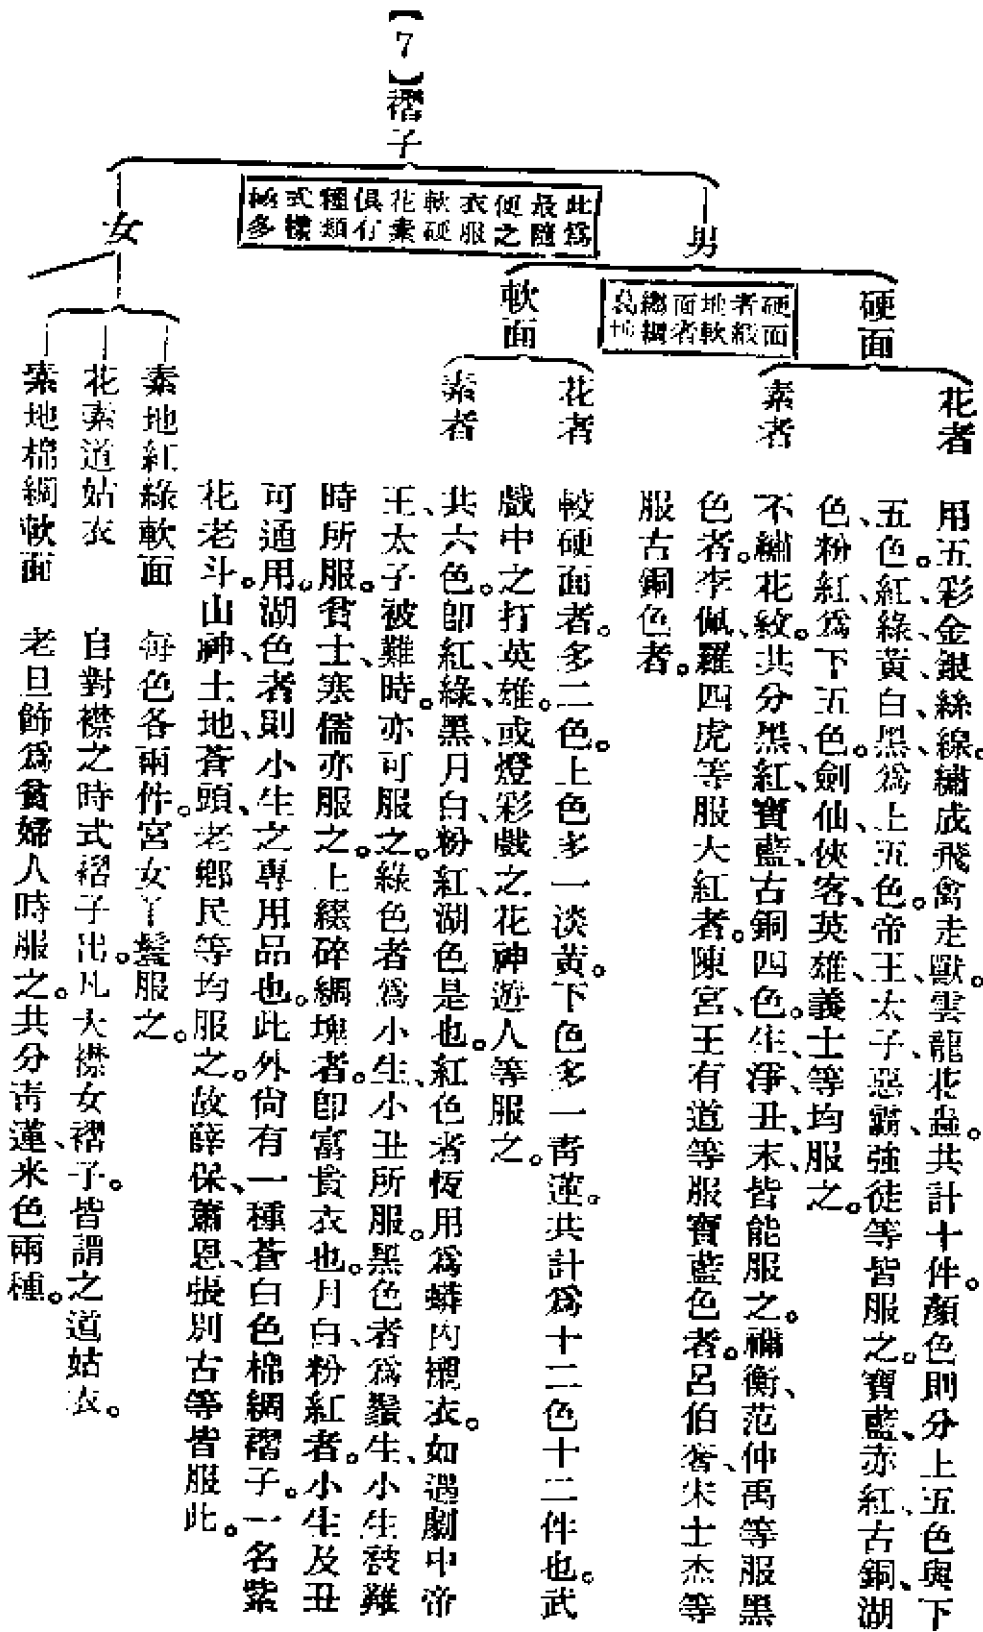 【7】褶子
此爲最隨便之衣服軟硬花素俱有種類式樣極多
男
硬面者緞地軟面者縐綢地
硬面
花者
用五彩金銀絲線繡成飛禽走獸雲龍花蟲。共計十件。顏色則分上五色與下
五色。紅、綠、黃、白、黑、爲上五色。帝王、太子、惡霸、強徒等皆服之。寶藍、赤紅、古銅、湖
色、粉紅、爲下五色。劍仙、俠客、英雄、義士等均服之。
素者
不繡花紋。共分黑、紅、寶藍、古銅四色。生、淨、丑、末、皆能服之。禰衡、范仲禹等服黑
色者。李佩、羅四虎等服大紅者。陳宮、王有道等服寶藍色者。呂伯奢、宋士杰等
服古銅色者。
軟面
花者
較硬面者。多二色。上色多一淡黃。下色多一青蓮。共計爲十二色十二件也。武
戲中之打英雄。或燈彩戲之花神、遊人等服之。
素者
共六色。卽紅、綠、黑、月白、粉紅、湖色是也。紅色者恆用爲蟒內襯衣。如遇劇中帝
王、太子被難時。亦可服之。綠色者爲小生、小丑所服。黑色者爲鬚生、小生被難
時所服。貧士、寒儒亦服之。上綴碎綢塊者。卽富貴衣也。月白、粉紅者。小生及丑
可通用。湖色者。則小生之專用品也。此外尙有一種蒼白色棉綢褶子。一名紫
花老斗。山神、土地、蒼頭、老鄉民等均服之。故薛保、蕭恩、張別古等皆服此。
女
素地紅綠軟面
每色各兩件。宮女丫鬟服之。
花素道姑衣
自對襟之時式褶子出。凡大襟女褶子。皆謂之道姑衣。
素地棉綢軟面
老旦飾爲貧婦人時服之。共分青蓮、米色兩種。